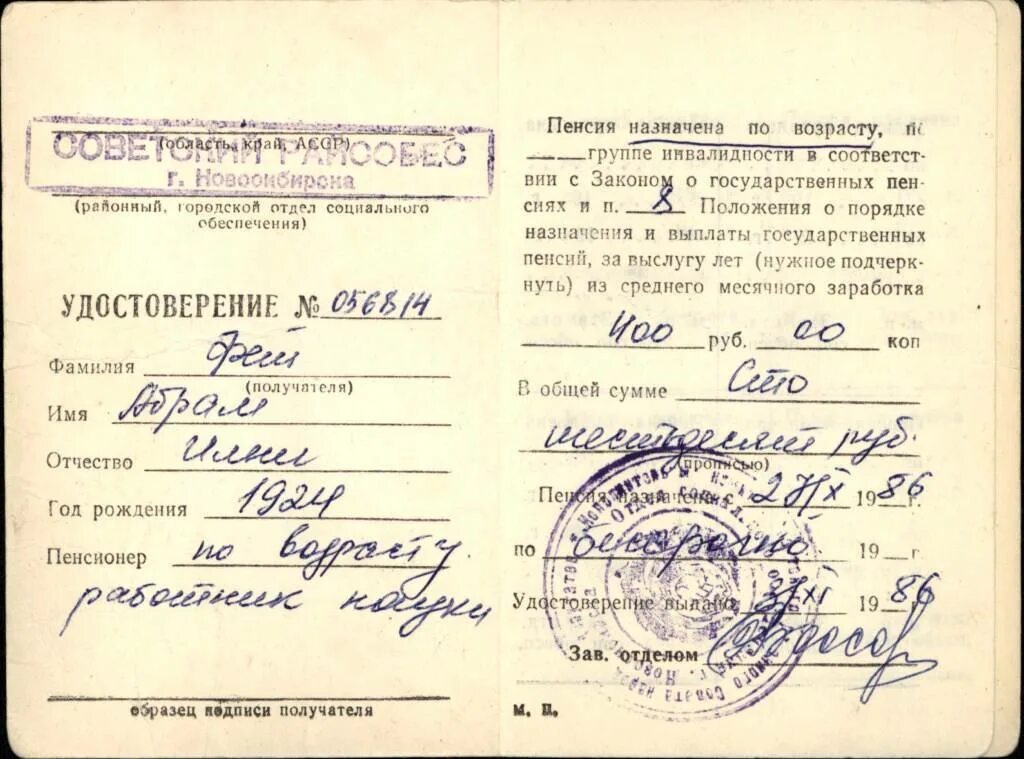 (область, край, АССР)
СОВЕТСКИЙ РАЙСОБЕС
г. Новосибирска
(районный, городской отдел социального
обеспечения)
УДОСТОВЕРЕНИЕ № 056814
Фамилия Фет
(получателя)
Имя Абрам
Отчество Илии
Год рождения 1924
Пенсионер по возрасту
работник науки
образец подписи получателя
Пенсия назначена по возрасту, по
группе инвалидности в соответст-
вии с Законом о государственных пен-
сиях и п. 8 Положения о порядке
назначения и выплаты государственных
пенсий, за выслугу лет (нужное подчерк-
нуть) из среднего месячного заработка
400 руб. 00 коп
В общей сумме Сто
шестьдесят руб.
(прописью)
Пенсия назначена с 2/XI 1986 г.
по 19 г.
Удостоверение выдано 3/XI 1986
Зав. отделом
м. п.